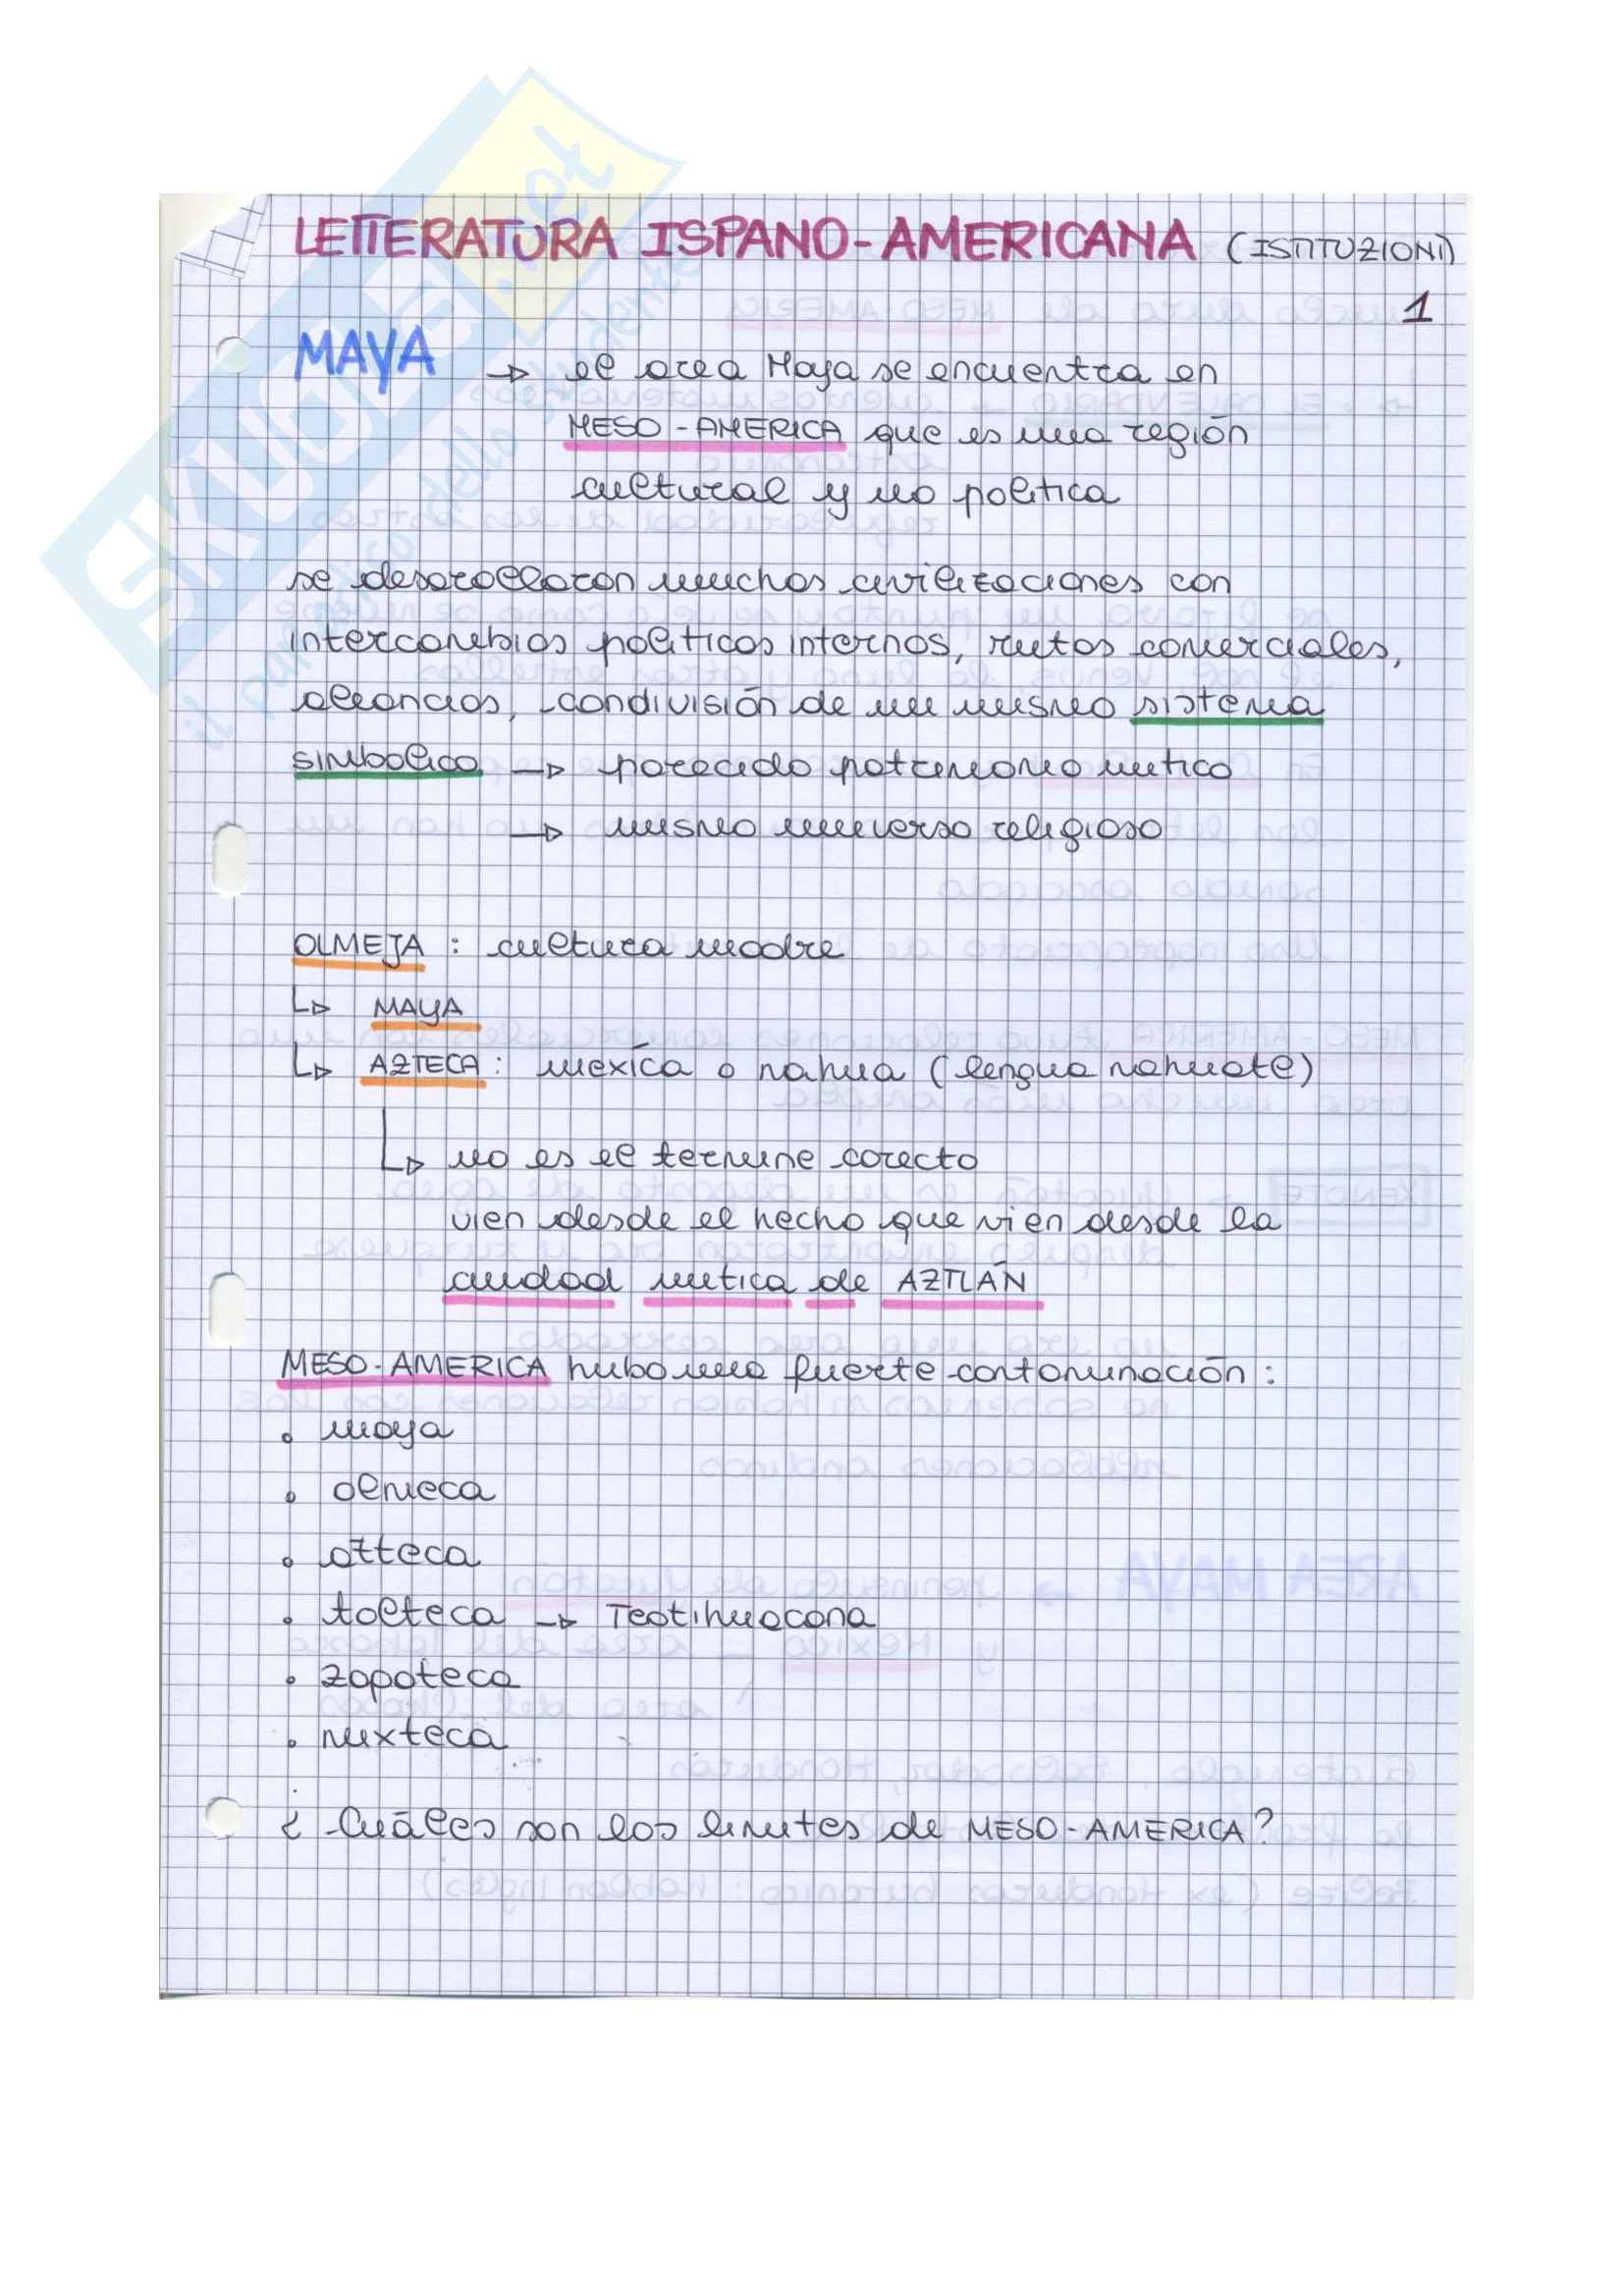 LETTERATURA ISPANO-AMERICANA (ISTITUZIONI)
1
MAYA → el area Maya se encuentra en
MESO-AMERICA que es una región
cultural y no politica
se desarollaron muchas civilizaciones con
intercambios politicos internos, rutas comerciales,
alleancias, condivisión de un mismo sistema
simbolico → parecido patrimonio mitico
→ mismo universo religioso
OLMEJA : cultura madre
↳ MAYA
↳ AZTECA : mexíca o nahua (lengua nahuate)
↳ no es el termine corecto
vien desde el hecho que vien desde la
ciudad mitica de AZTLÁN
MESO-AMERICA hubo una fuerte contaminación :
• maya
• olmeca
• azteca
• tolteca → Teotihuacana
• zapoteca
• mixteca
¿ Cuáles son los limites de MESO-AMERICA?
SKUOLA.net
il paradiso dello studente